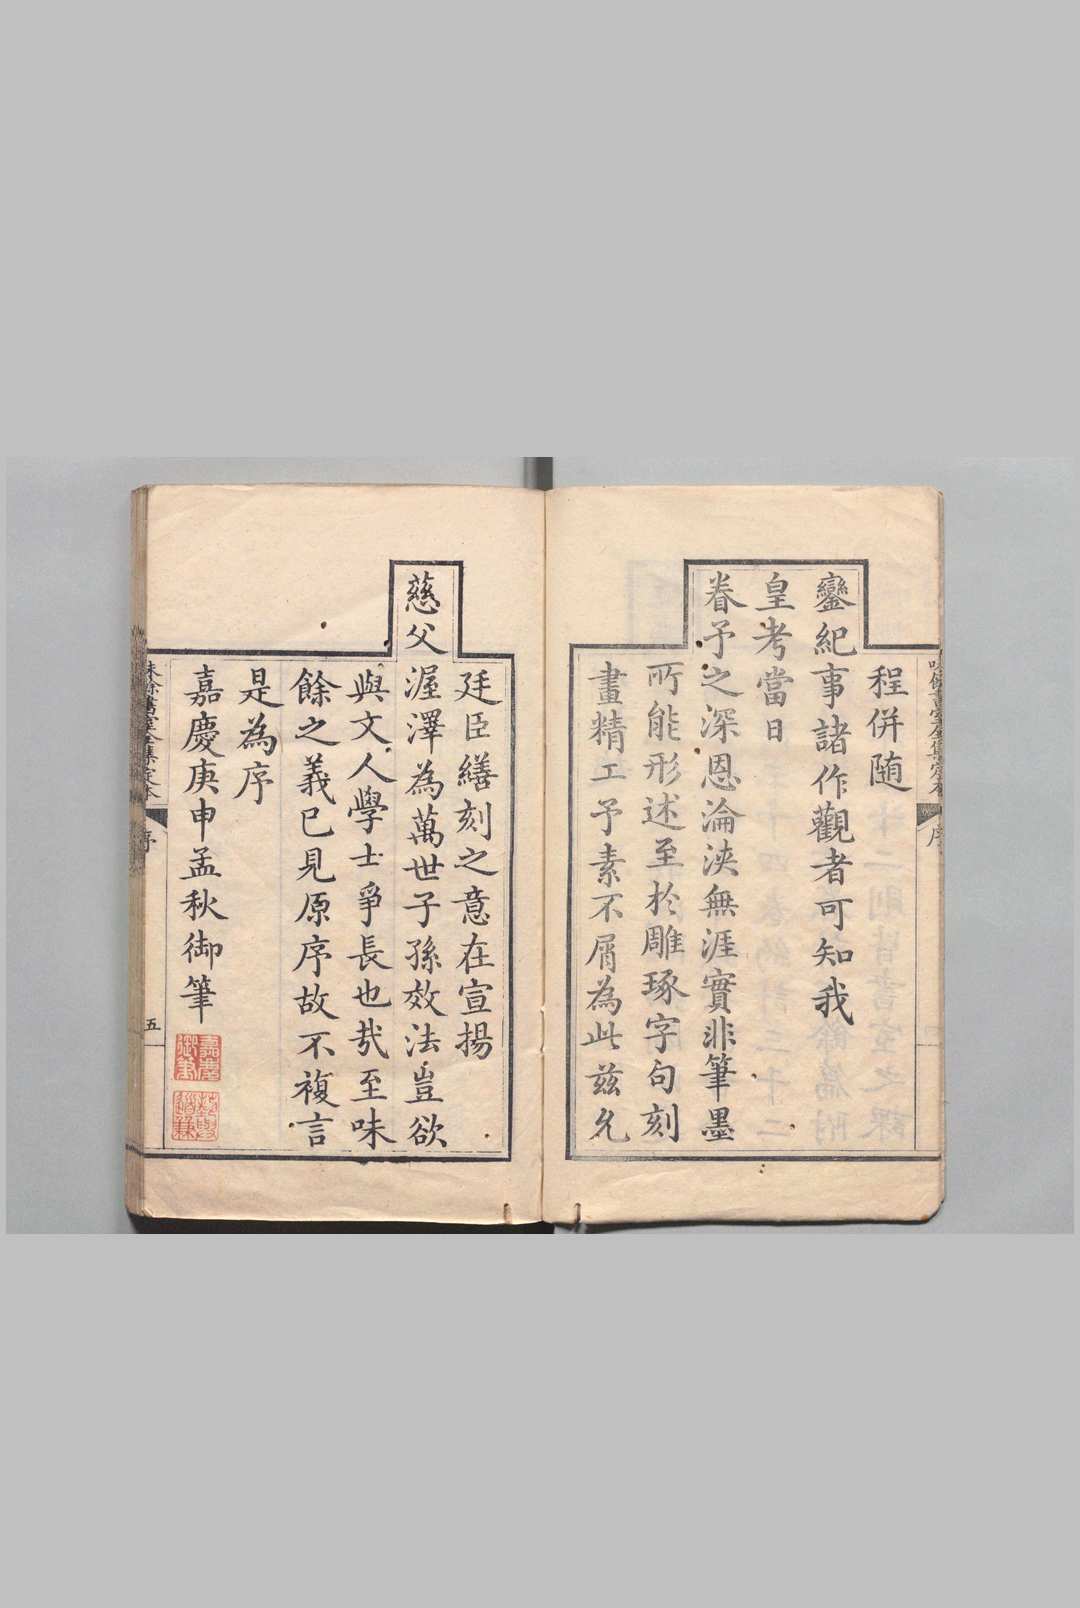 程併随
鑾紀事諸作觀者可知我
皇考當日
眷予之深恩淪浹無涯實非筆墨
所能形述至於雕琢字句刻
畫精工予素不屑為此兹允
廷臣繕刻之意在宣揚
慈父渥澤為萬世子孫效法豈欲
與文人學士爭長也㢤至味
餘之義已見原序故不複言
是為序
嘉慶庚申孟秋御筆
嘉慶
御筆
味餘書室全集定本
序
五